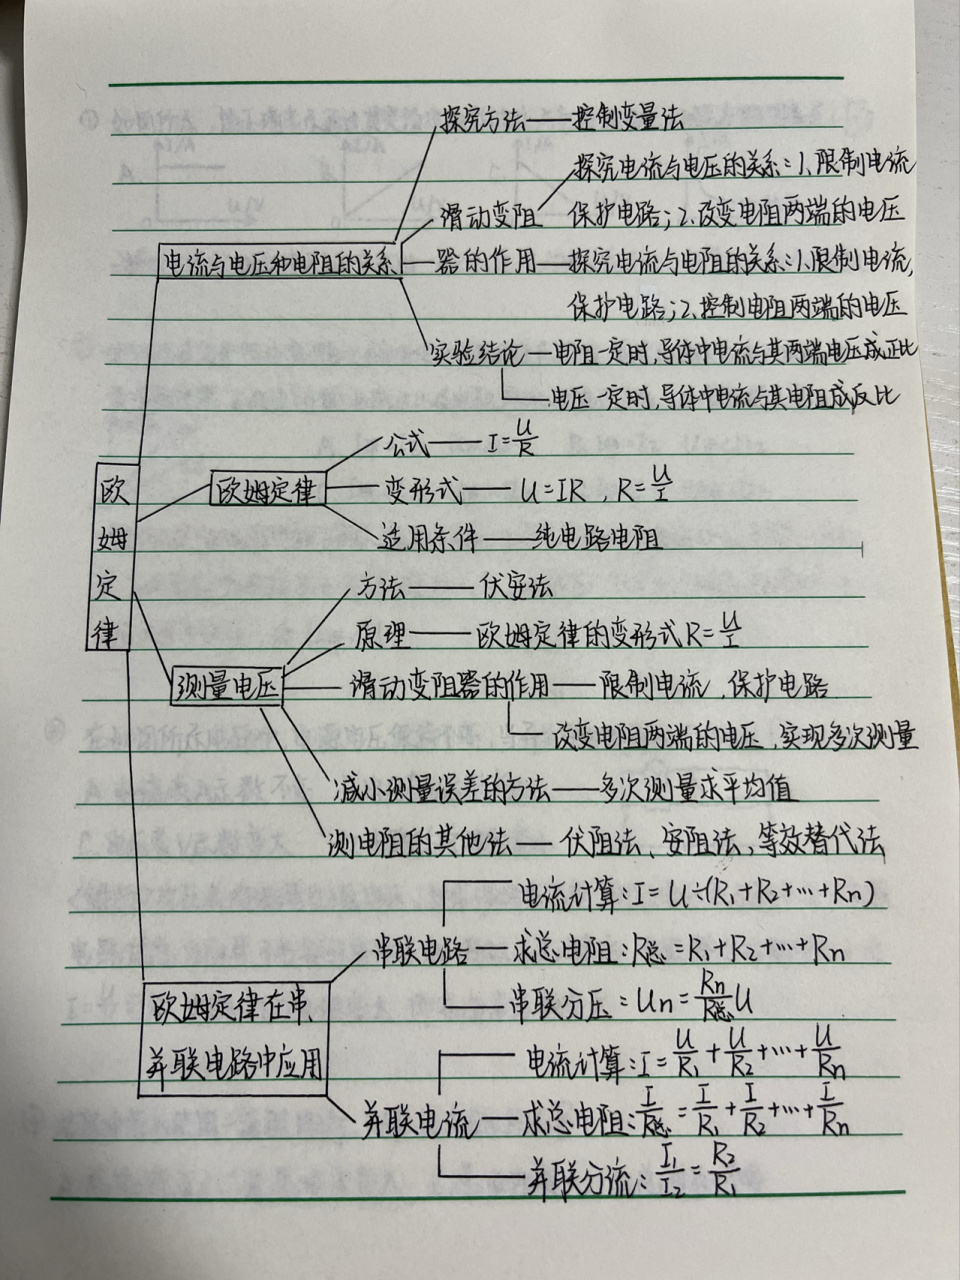 探究方法——控制变量法
探究电流与电压的关系:1、限制电流
滑动变阻
保护电路;2、改变电阻两端的电压
电流与电压和电阻的关系
器的作用——探究电流与电阻的关系:1、限制电流,
保护电路;2、控制电阻两端的电压
实验结论——电阻一定时,导体中电流与其两端电压成正比
电压一定时,导体中电流与其电阻成反比
公式——I=U/R
欧姆定律
欧姆定律
变形式——U=IR,R=U/I
适用条件——纯电路电阻
方法——伏安法
原理——欧姆定律的变形式R=U/I
测量电压
滑动变阻器的作用——限制电流,保护电路
改变电阻两端的电压,实现多次测量
减小测量误差的方法——多次测量求平均值
测电阻的其他法——伏阻法、安阻法,等效替代法
电流计算:I=U÷(R1+R2+…+Rn)
串联电路——求总电阻:R总=R1+R2+…+Rn
串联分压:Un=Rn/R总 U
欧姆定律在串、
并联电路中应用
电流计算:I=U/R1+U/R2+…+U/Rn
并联电流——求总电阻:I/R总=I/R1+I/R2+…+I/Rn
并联分流:I1/I2=R2/R1